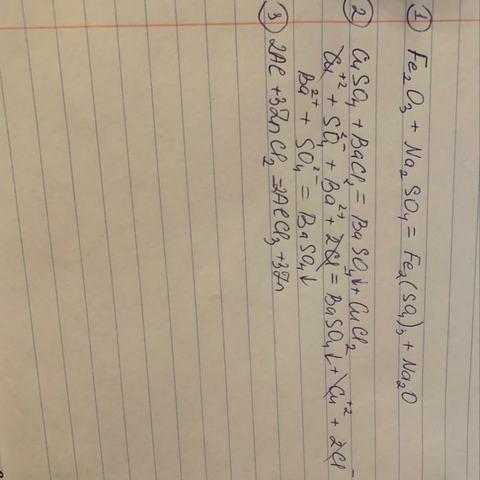 ① Fe₂O₃ + Na₂SO₄ = Fe₂(SO₄)₃ + Na₂O
② CuSO₄ + BaCl₂ = BaSO₄↓ + CuCl₂
Cu⁺² + SO₄²⁻ + Ba²⁺ + 2Cl⁻ = BaSO₄↓ + Cu⁺² + 2Cl⁻
Ba²⁺ + SO₄²⁻ = BaSO₄↓
③ 2Al + 3ZnCl₂ = 2AlCl₃ + 3Zn